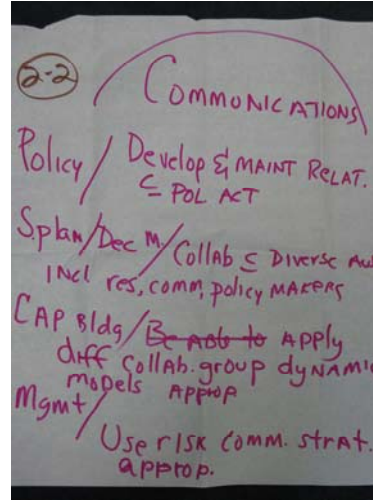 2-2
COMMUNICATIONS
Policy / Develop & MAINT RELAT.
c̄ POL ACT
S.plan/Dec M./Collab c̄ Diverse Au
INCl res, comm, policy MAKERS
CAP Bldg/ Be Able to APPly
diff Collab. group dyNAMIC
MoDels APProp
Mgmt/
Use rISK Comm. strat.
approp.